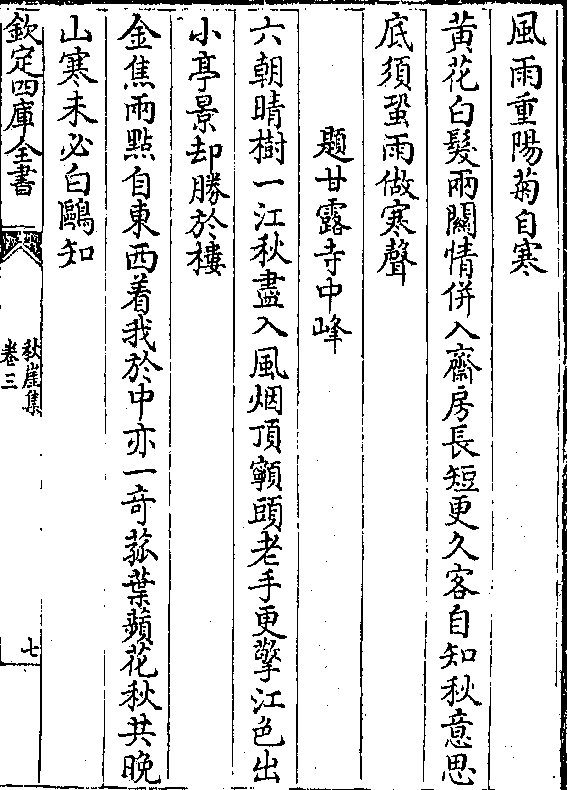 風雨重陽菊自寒
黃花白髮兩關情併入齋房長短更久客自知秋意思
底須蛩雨做寒聲
題甘露寺中峰
六朝晴樹一江秋盡入風烟頂顊頭老手更擎江色出
小亭景却勝於樓
金焦兩點自東西着我於中亦一竒菰葉蘋花秋共晚
山寒未必白鷗知
欽定四庫全書
秋崖集
卷三
七